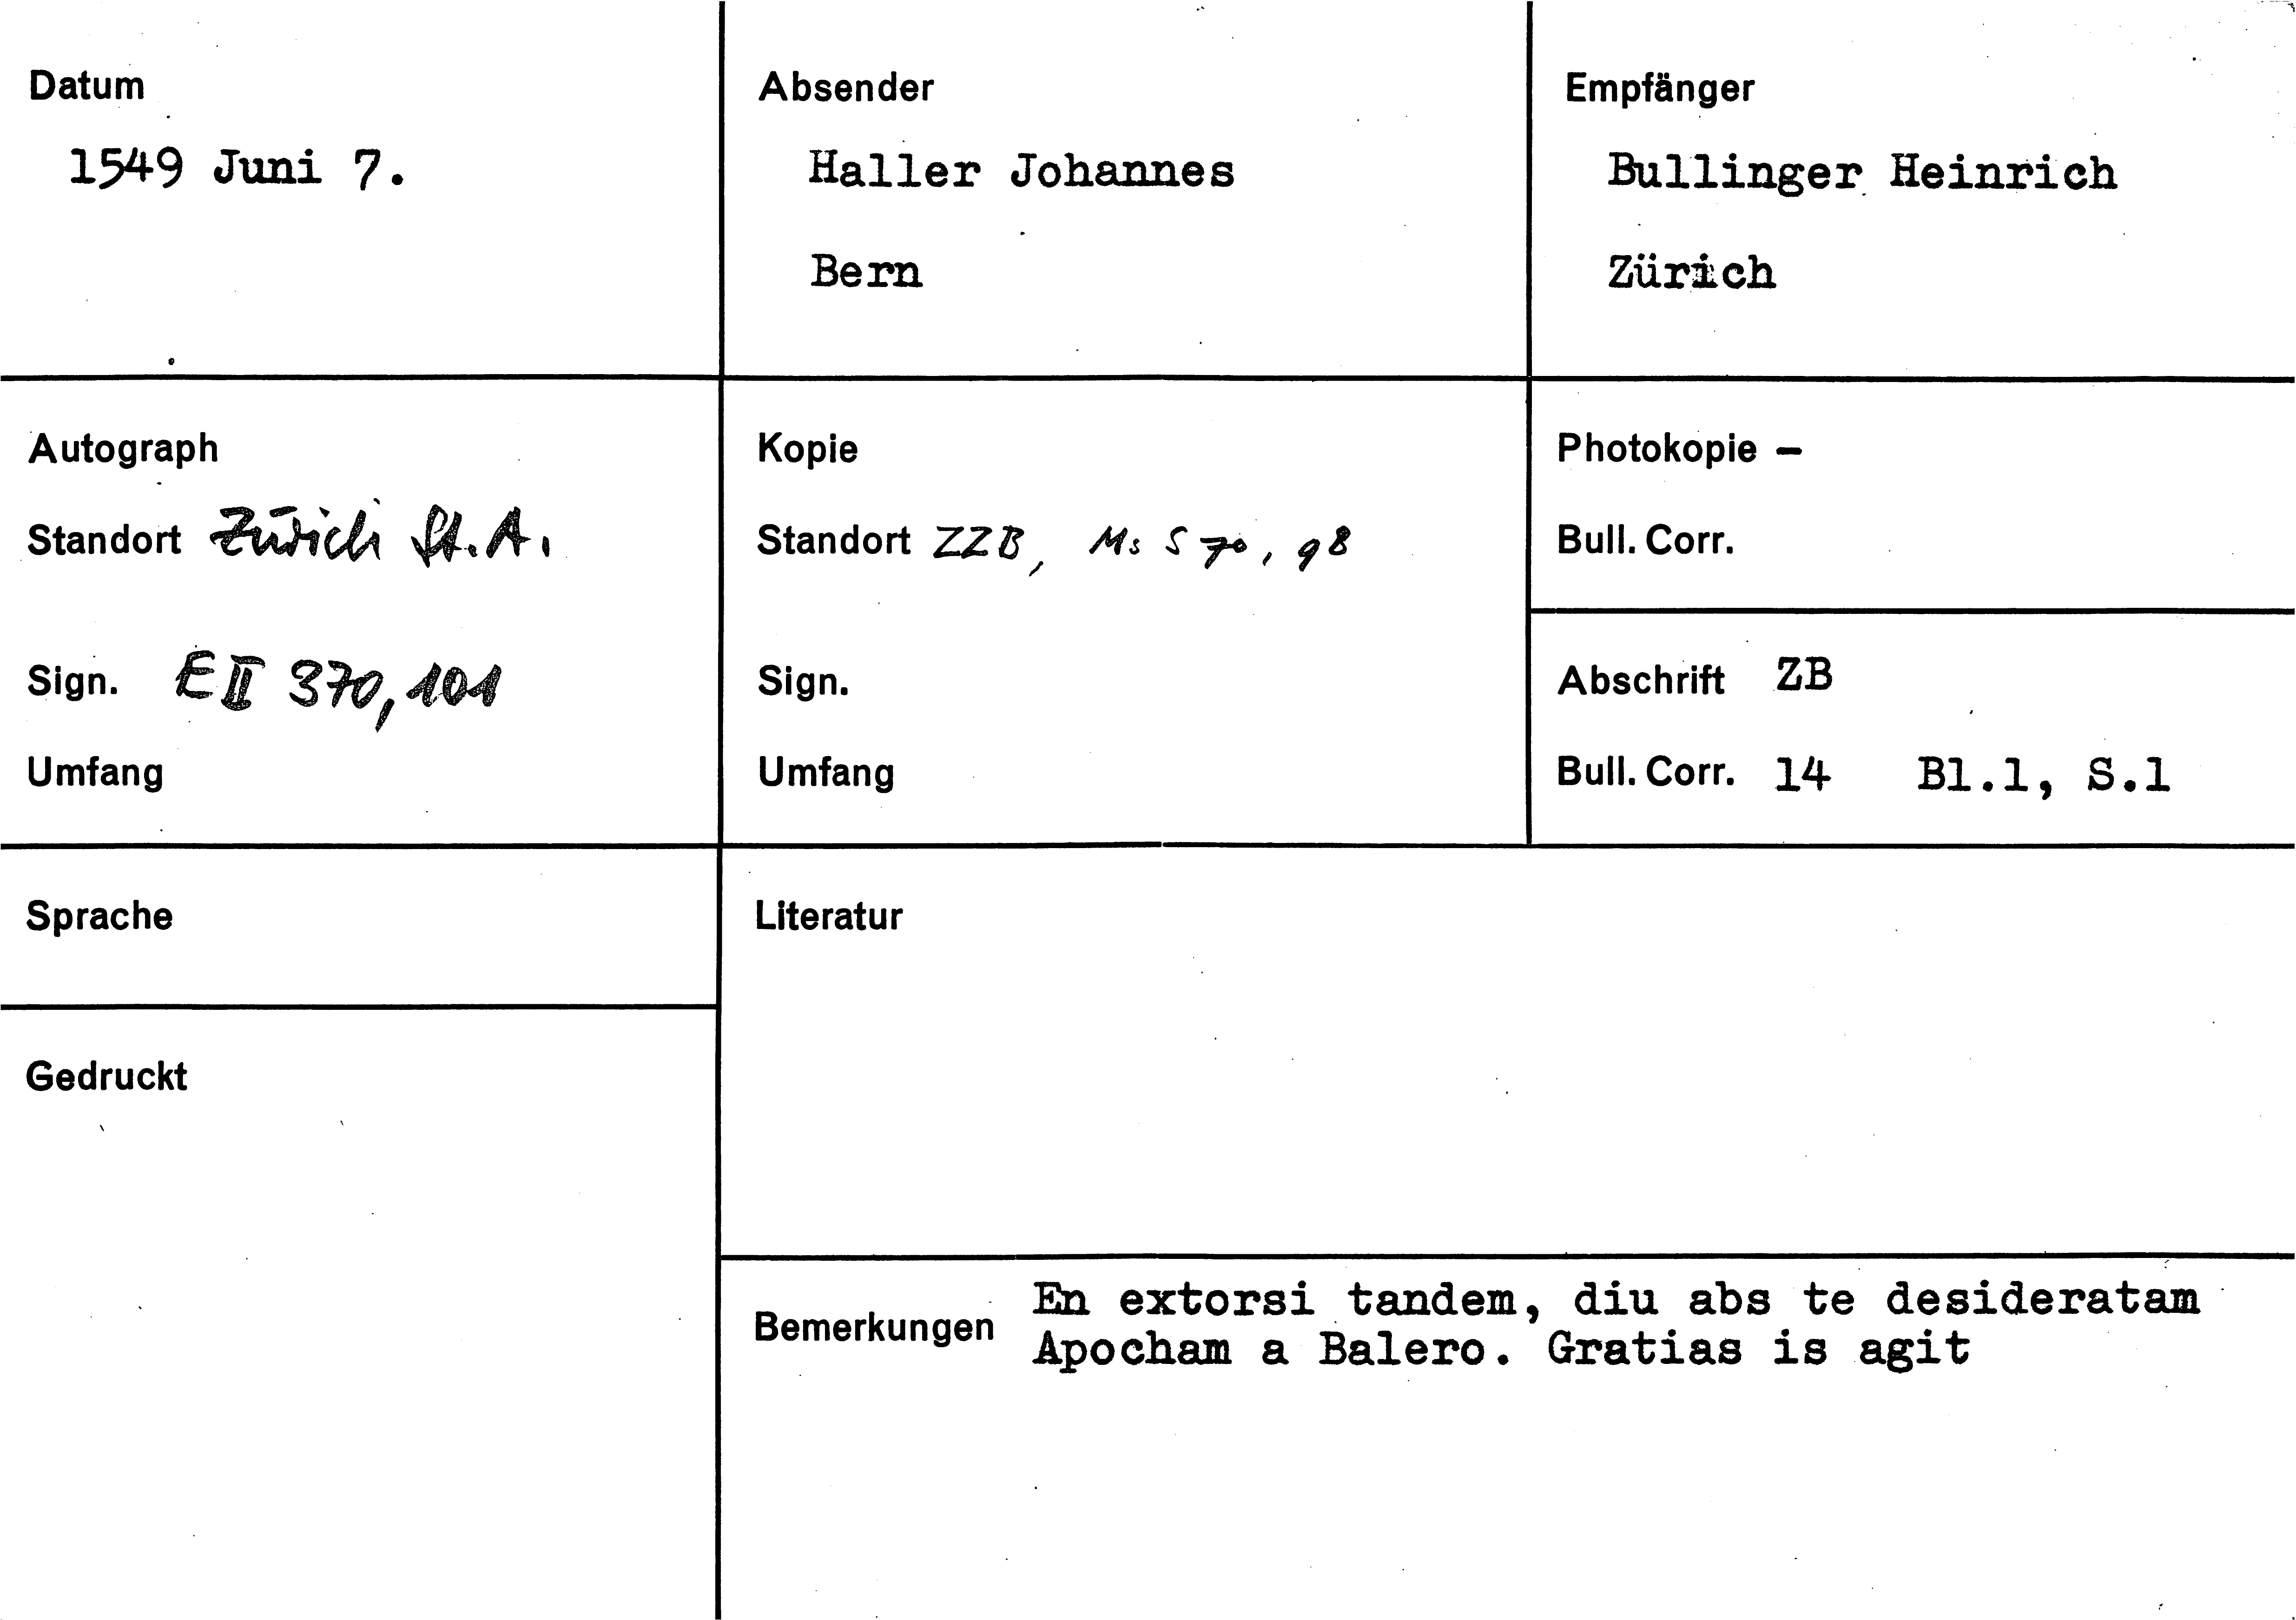 Datum
1549 Juni 7.
Absender
Haller Johannes
Bern
Empfänger
Bullinger Heinrich
Zürich
Autograph
Standort Zürich St.A.
Sign. E II 370, 101
Umfang
Kopie
Standort ZZB, Ms S 70, 98
Sign.
Umfang
Photokopie –
Bull. Corr.
Abschrift ZB
Bull. Corr. 14 Bl.1, S.1
Sprache
Gedruckt
Literatur
Bemerkungen En extorsi tandem, diu abs te desideratam
Apocham a Balero. Gratias is agit